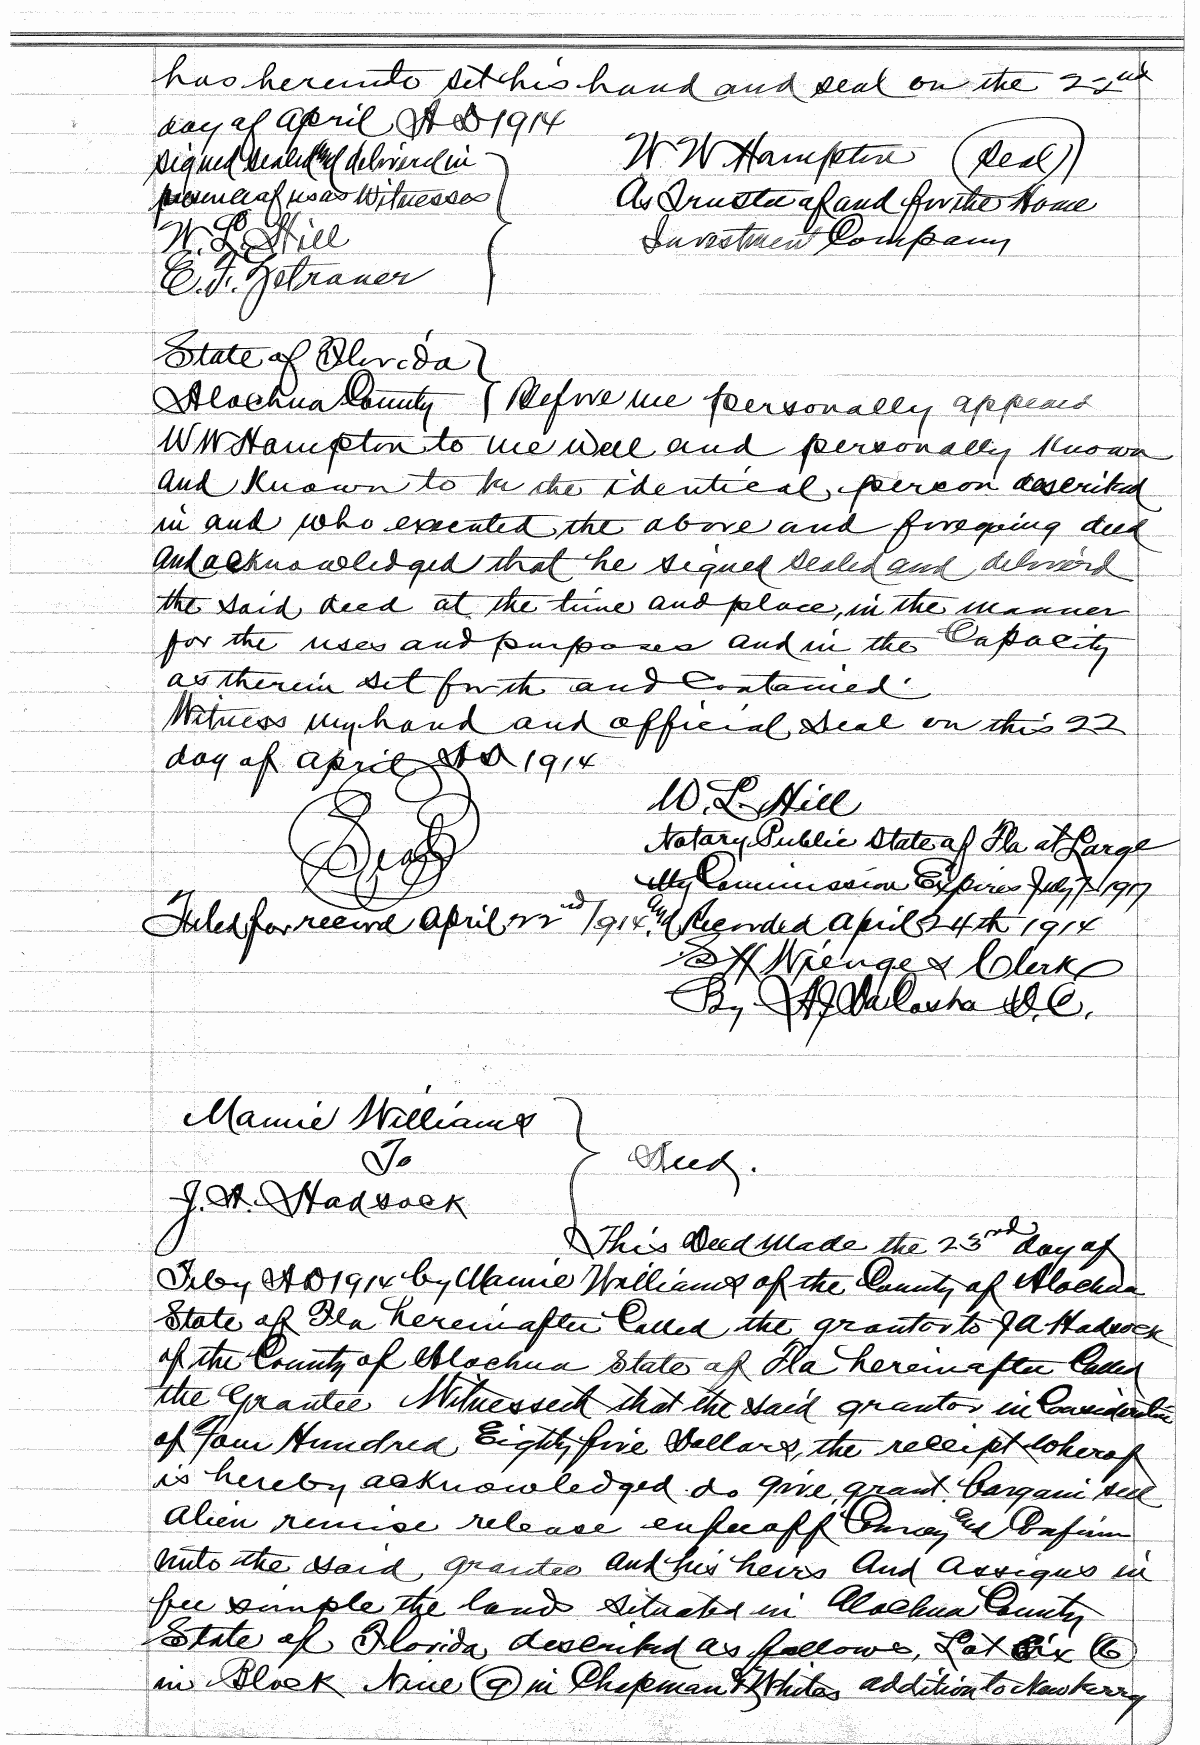 has hereunto set his hand and seal on the 22nd
day of April A D 1914
signed sealed and delivered in
presence of us as Witnesses
W W Hampton (Seal)
As Trustee of and for the Home
Investment Company
W. L. Hill
E. F. Zetrouer
State of Florida
Alachua County Before me personally appears
W W Hampton to me well and personally known
and known to be the identical person described
in and who executed the above and foregoing deed
and acknowledged that he signed sealed and delivered
the said deed at the time and place, in the manner
for the uses and purposes and in the Capacity
as therein set forth and Contained.
Witness my hand and official Seal on this 22
day of April A D 1914
Seal
W. L. Hill
Notary Public State of Fla at Large
My Commission Expires July 7 1917
Filed for record April 22nd 1914 and Recorded April 24th 1914
S H Wienges Clerk
By A J DaCosta D.C.
Mamie Williams
To
J. A. Hadsock
Deed.
This Deed Made the 23rd day of
Feby A D 1914 by Mamie Williams of the County of Alachua
State of Fla hereinafter Called the grantor to J A Hadsock
of the County of Alachua State of Fla hereinafter Called
the Grantee Witnesseth that the said grantor in Consideration
of Four Hundred Eighty five Dollars, the receipt whereof
is hereby acknowledged do give, grant, bargain sell
alien remise release enfeoff Convey and Confirm
unto the said grantee and his heirs And Assigns in
fee simple the lands situated in Alachua County
State of Florida described as follows, Lot Six (6)
in Block Nine (9) in Chapman & Whites addition to Newberry